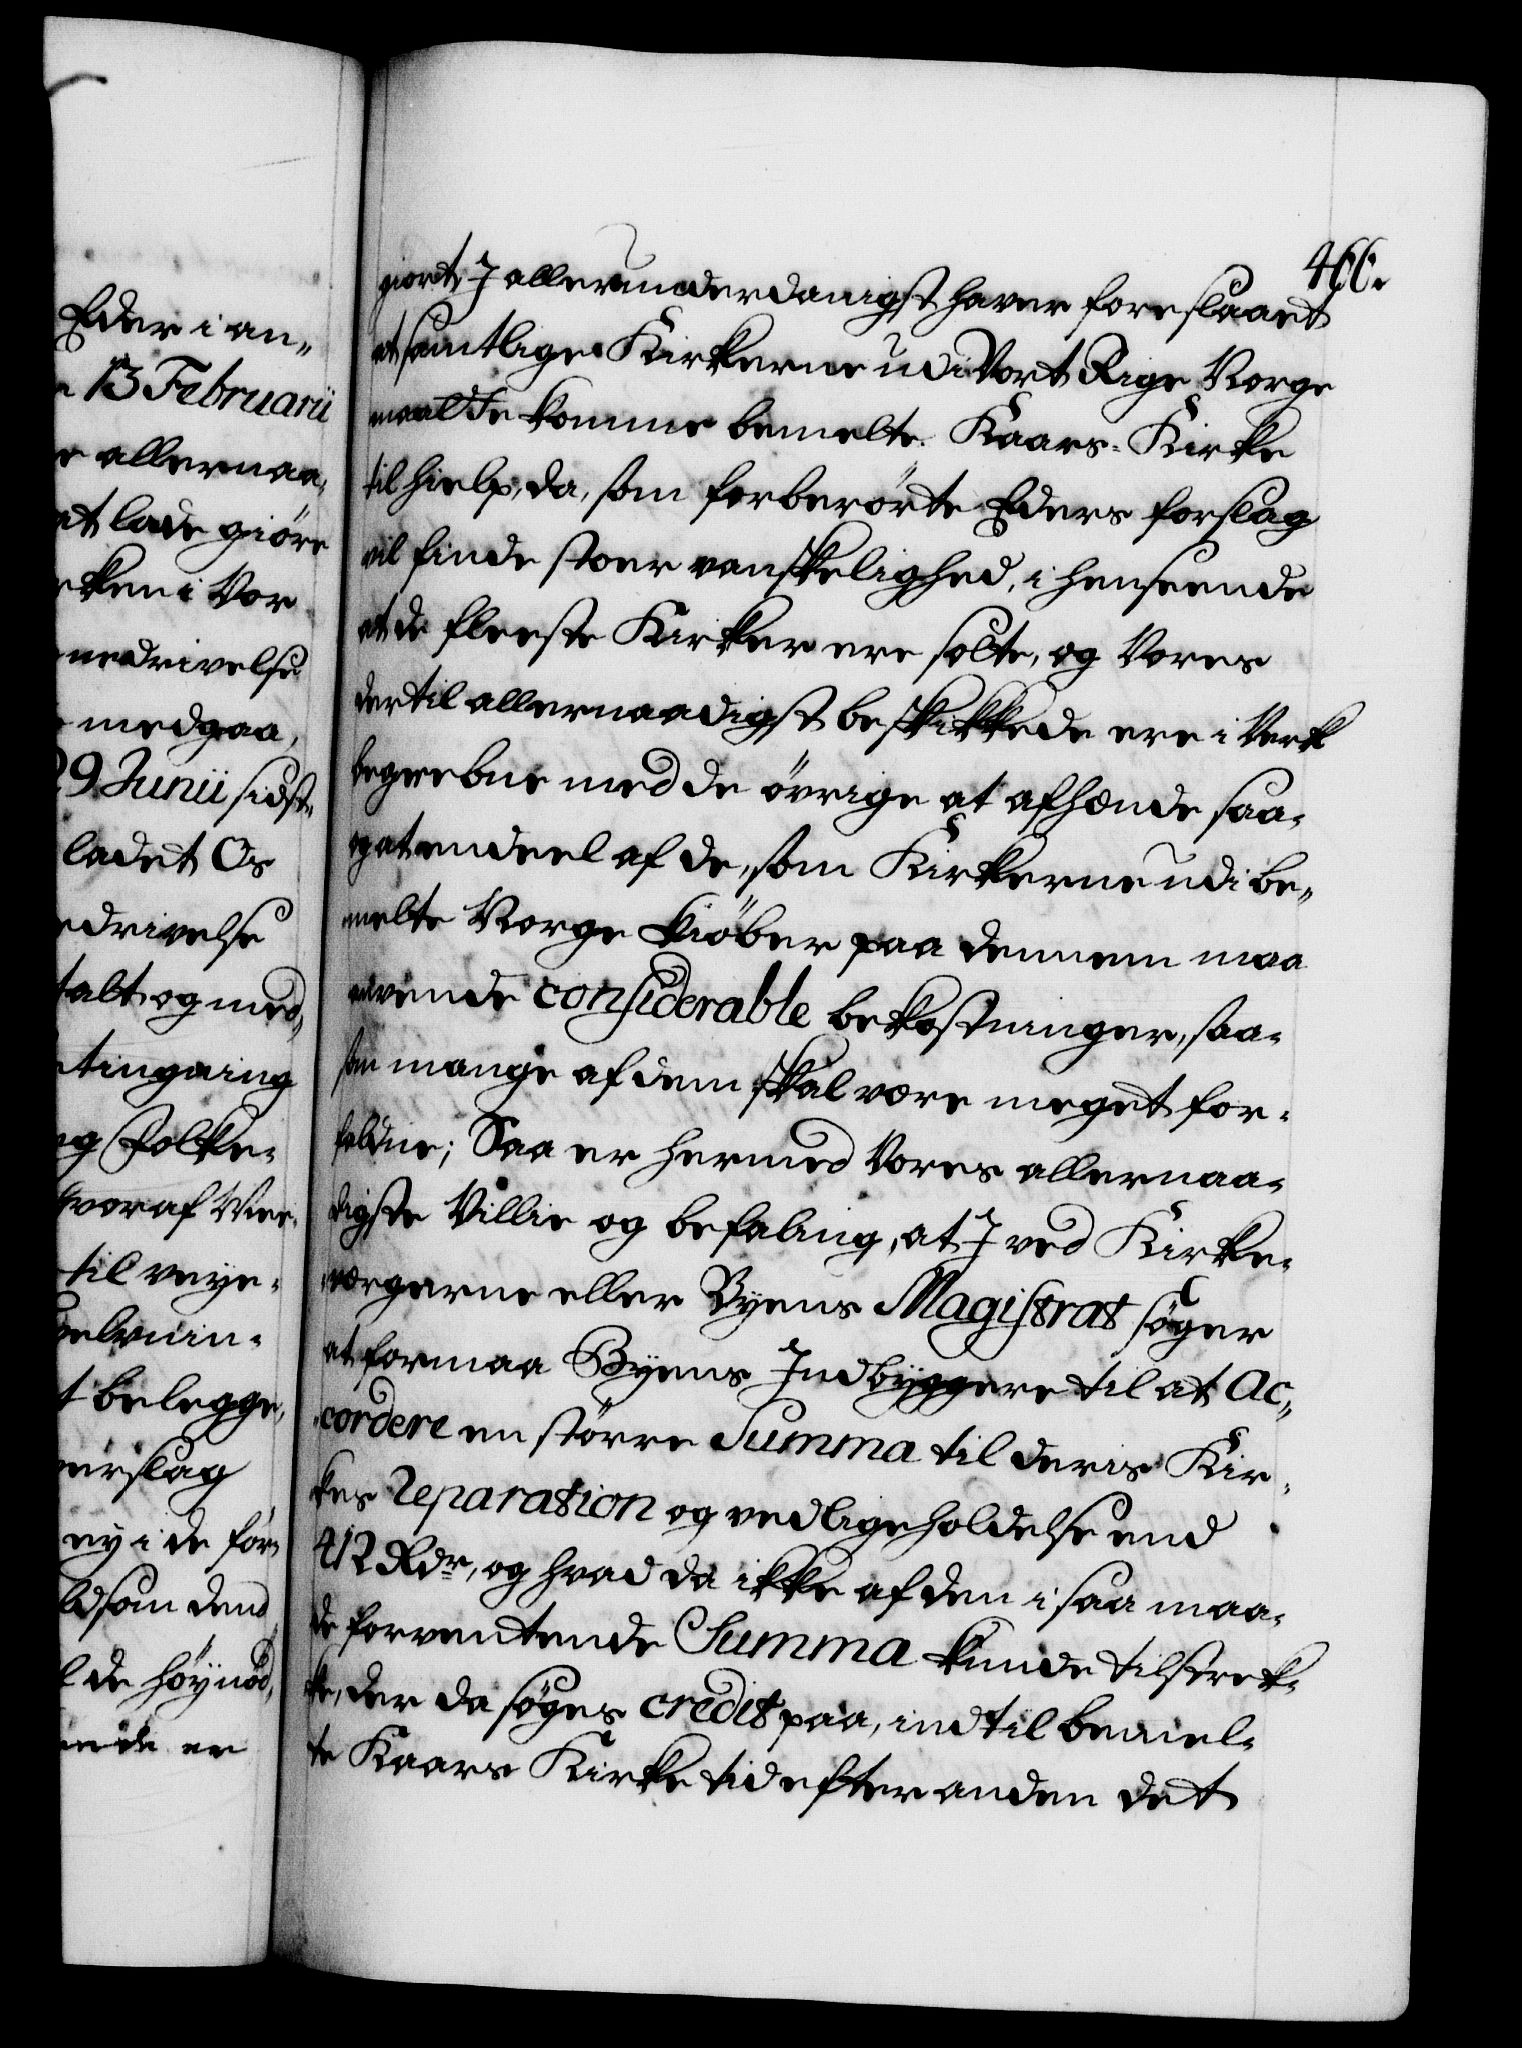 466.
giort, I allerunderdanigst haver foreslaaet
at samtlige Kirkerne udi Vort Rige Norge
maatte komme bemelte Kaars-Kirke
til hielp, da, som forberörte Eders forslag
vil finde stoer vanskelighed, i henseende
at de fleeste Kirker ere solte, og Vores
dertil allernaadigst beskikkede ere i Verk
begrebne med de övrige at afhænde saa-
og at endeel af de, som Kirkerne udi be-
melte Norge kiöber paa dennem maa
anvende considerable bekostninger, saa-
som mange af dem skal være meget for-
faldne; Saa er hermed Vores allernaa-
digste Villie og befaling, at I ved Kirke-
værgerne eller Byens Magistrat söger
at formaa Byens Indbyggere til at Ac-
cordere en större Summa til deris Kir-
kes Reparation og vedligeholdelse end
412 Rdr, og hvad da ikke af den i saa maa-
de forventende Summa kunde tilstrek-
ke, der da söges credit paa, indtil bemel-
te Kaars Kirke tid efter anden det
Eder i an-
13 Februarii
allernaa-
at lade giöre
i Vor
nedrivelse
medgaa,
29 Junii sidst-
ladet Os
talt og med-
og Folke-
hvoraf
til veye-
t belegge,
ey i de for-
som dend
de höynöd-
er